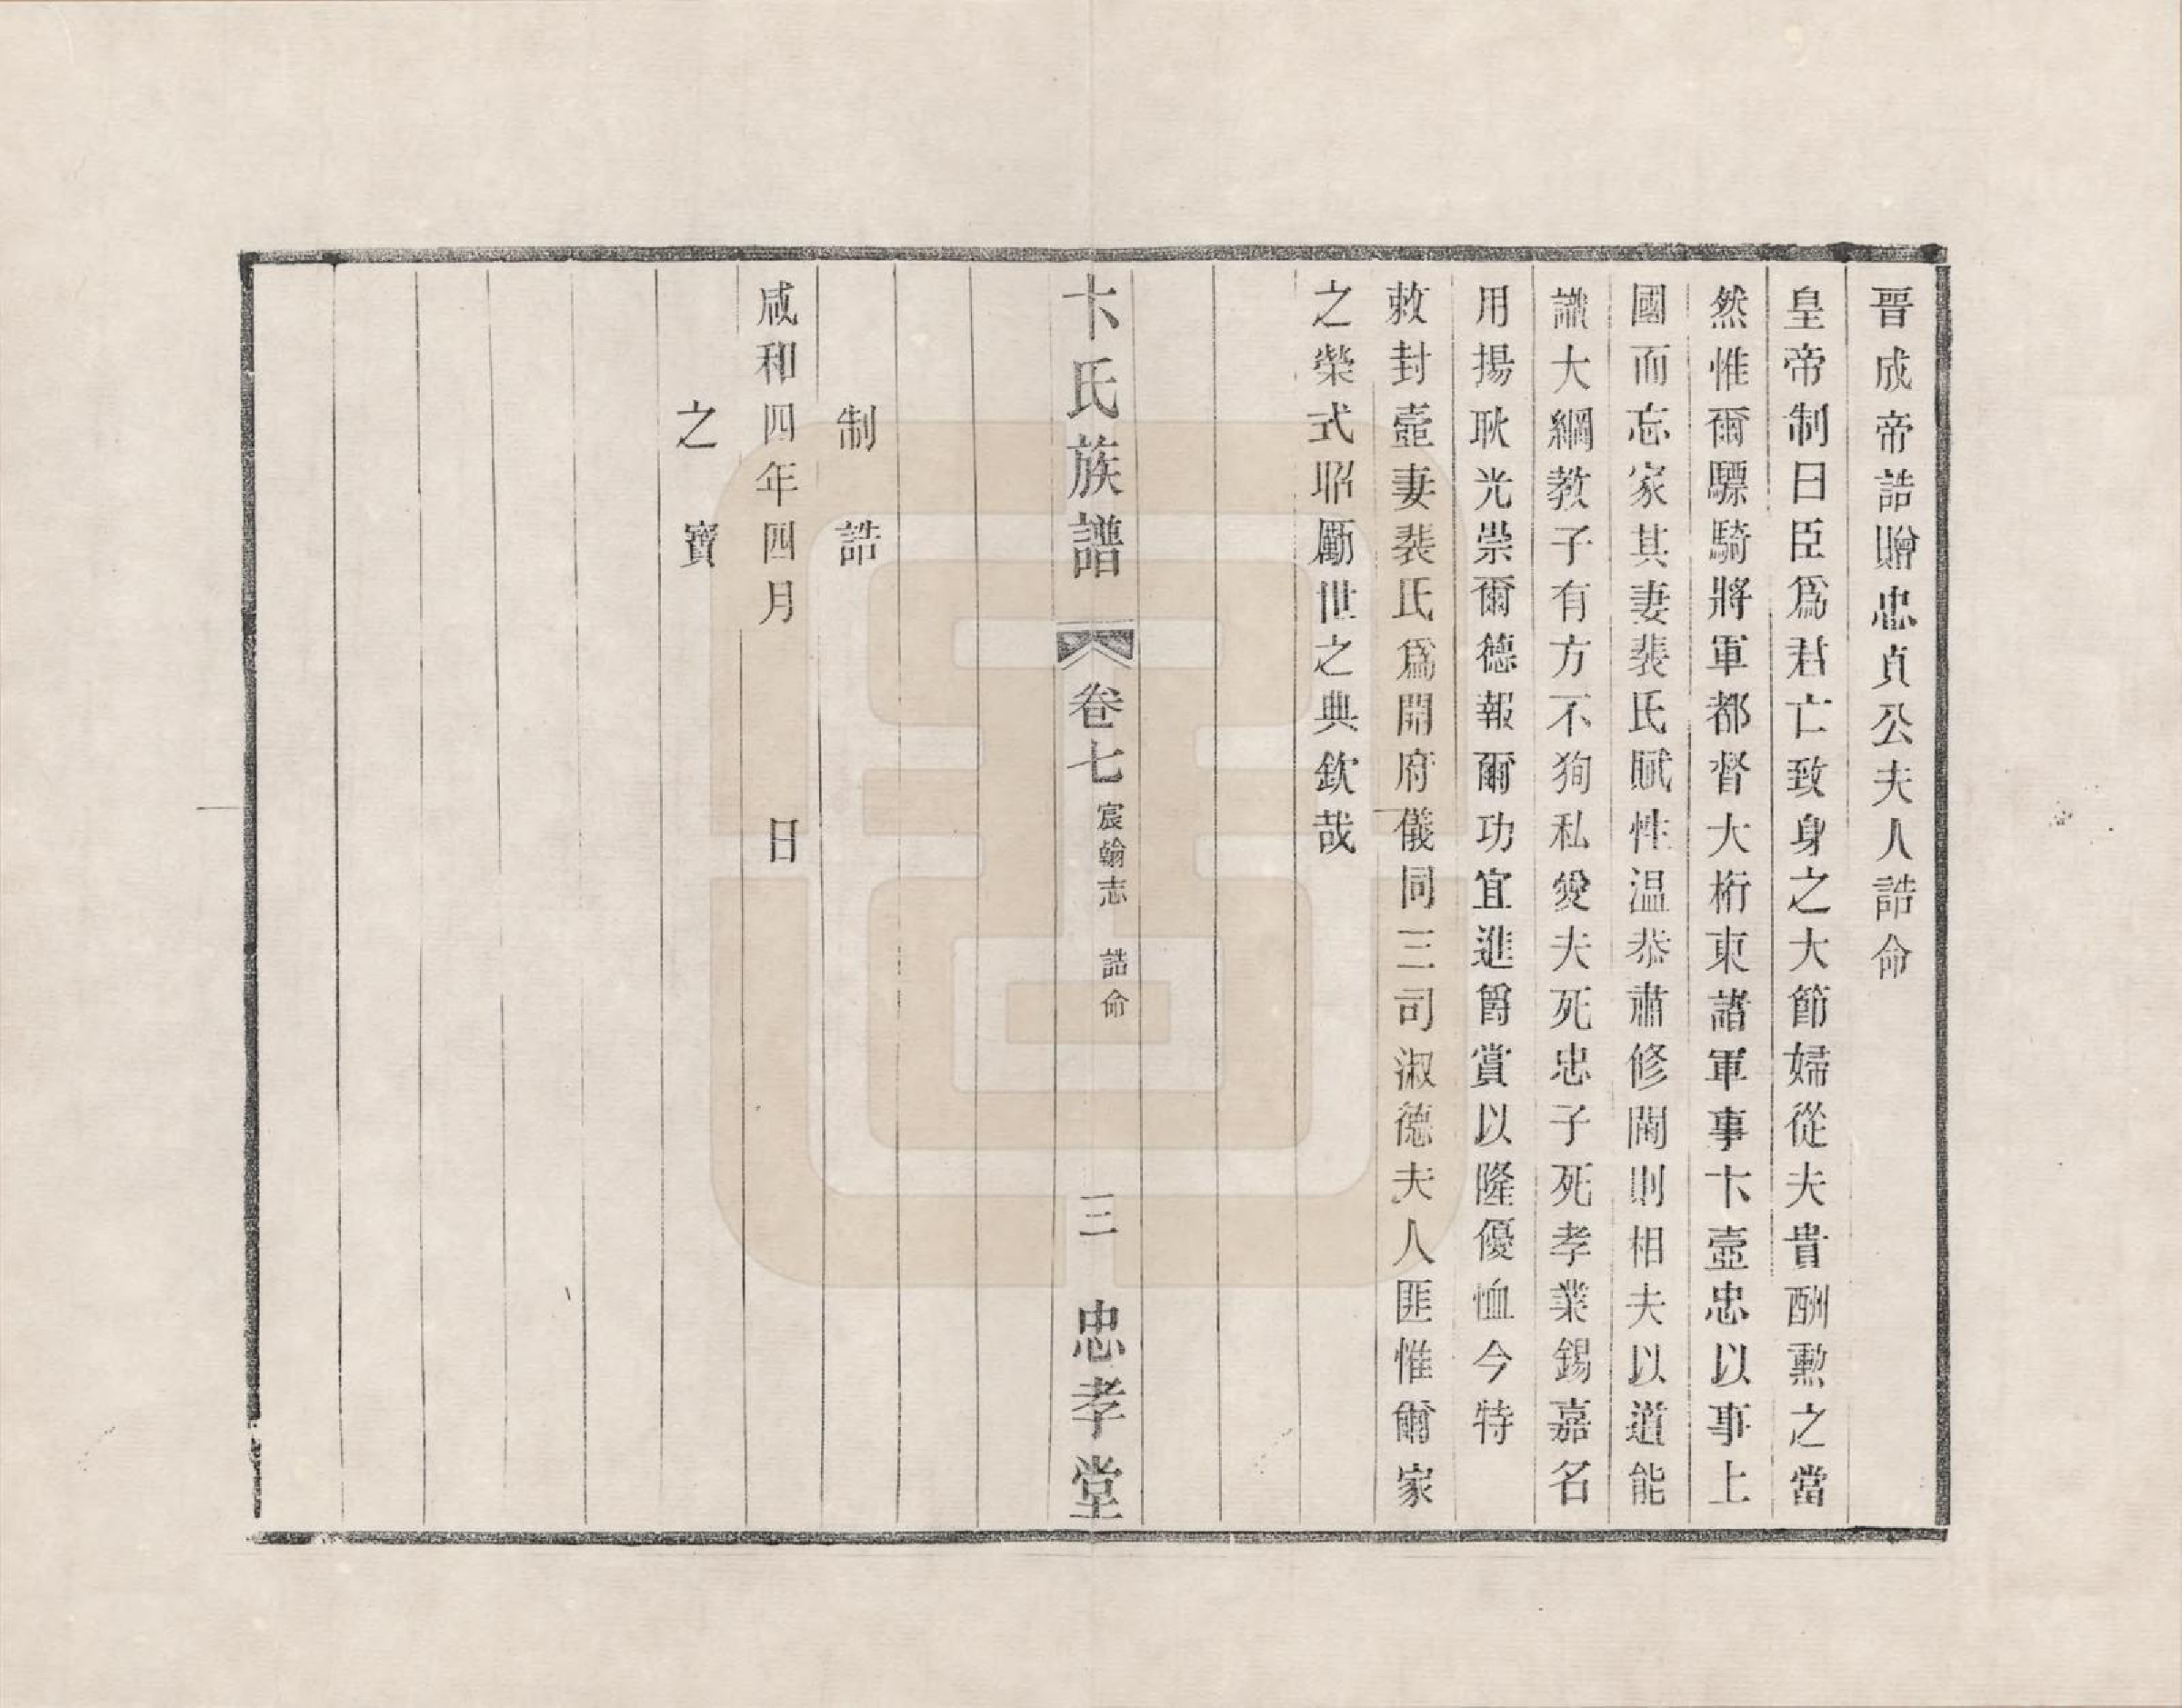 晉成帝誥贈忠貞公夫人誥命
皇帝制曰臣爲君亡致身之大節婦從夫貴酬勲之當
然惟爾驃騎將軍都督大桁東諸軍事卞壼忠以事上
國而忘家其妻裴氏賦性温恭肅修閫則相夫以道能
識大綱教子有方不狥私愛夫死忠子死孝業錫嘉名
用揚耿光崇爾德報爾功宜進爵賞以隆優恤今特
敕封壼妻裴氏爲開府儀同三司淑德夫人匪惟爾家
之榮式昭勵世之典欽哉
卞氏族譜 卷七 宸翰志 誥命 三 忠孝堂
制誥
咸和四年四月 日
之寶